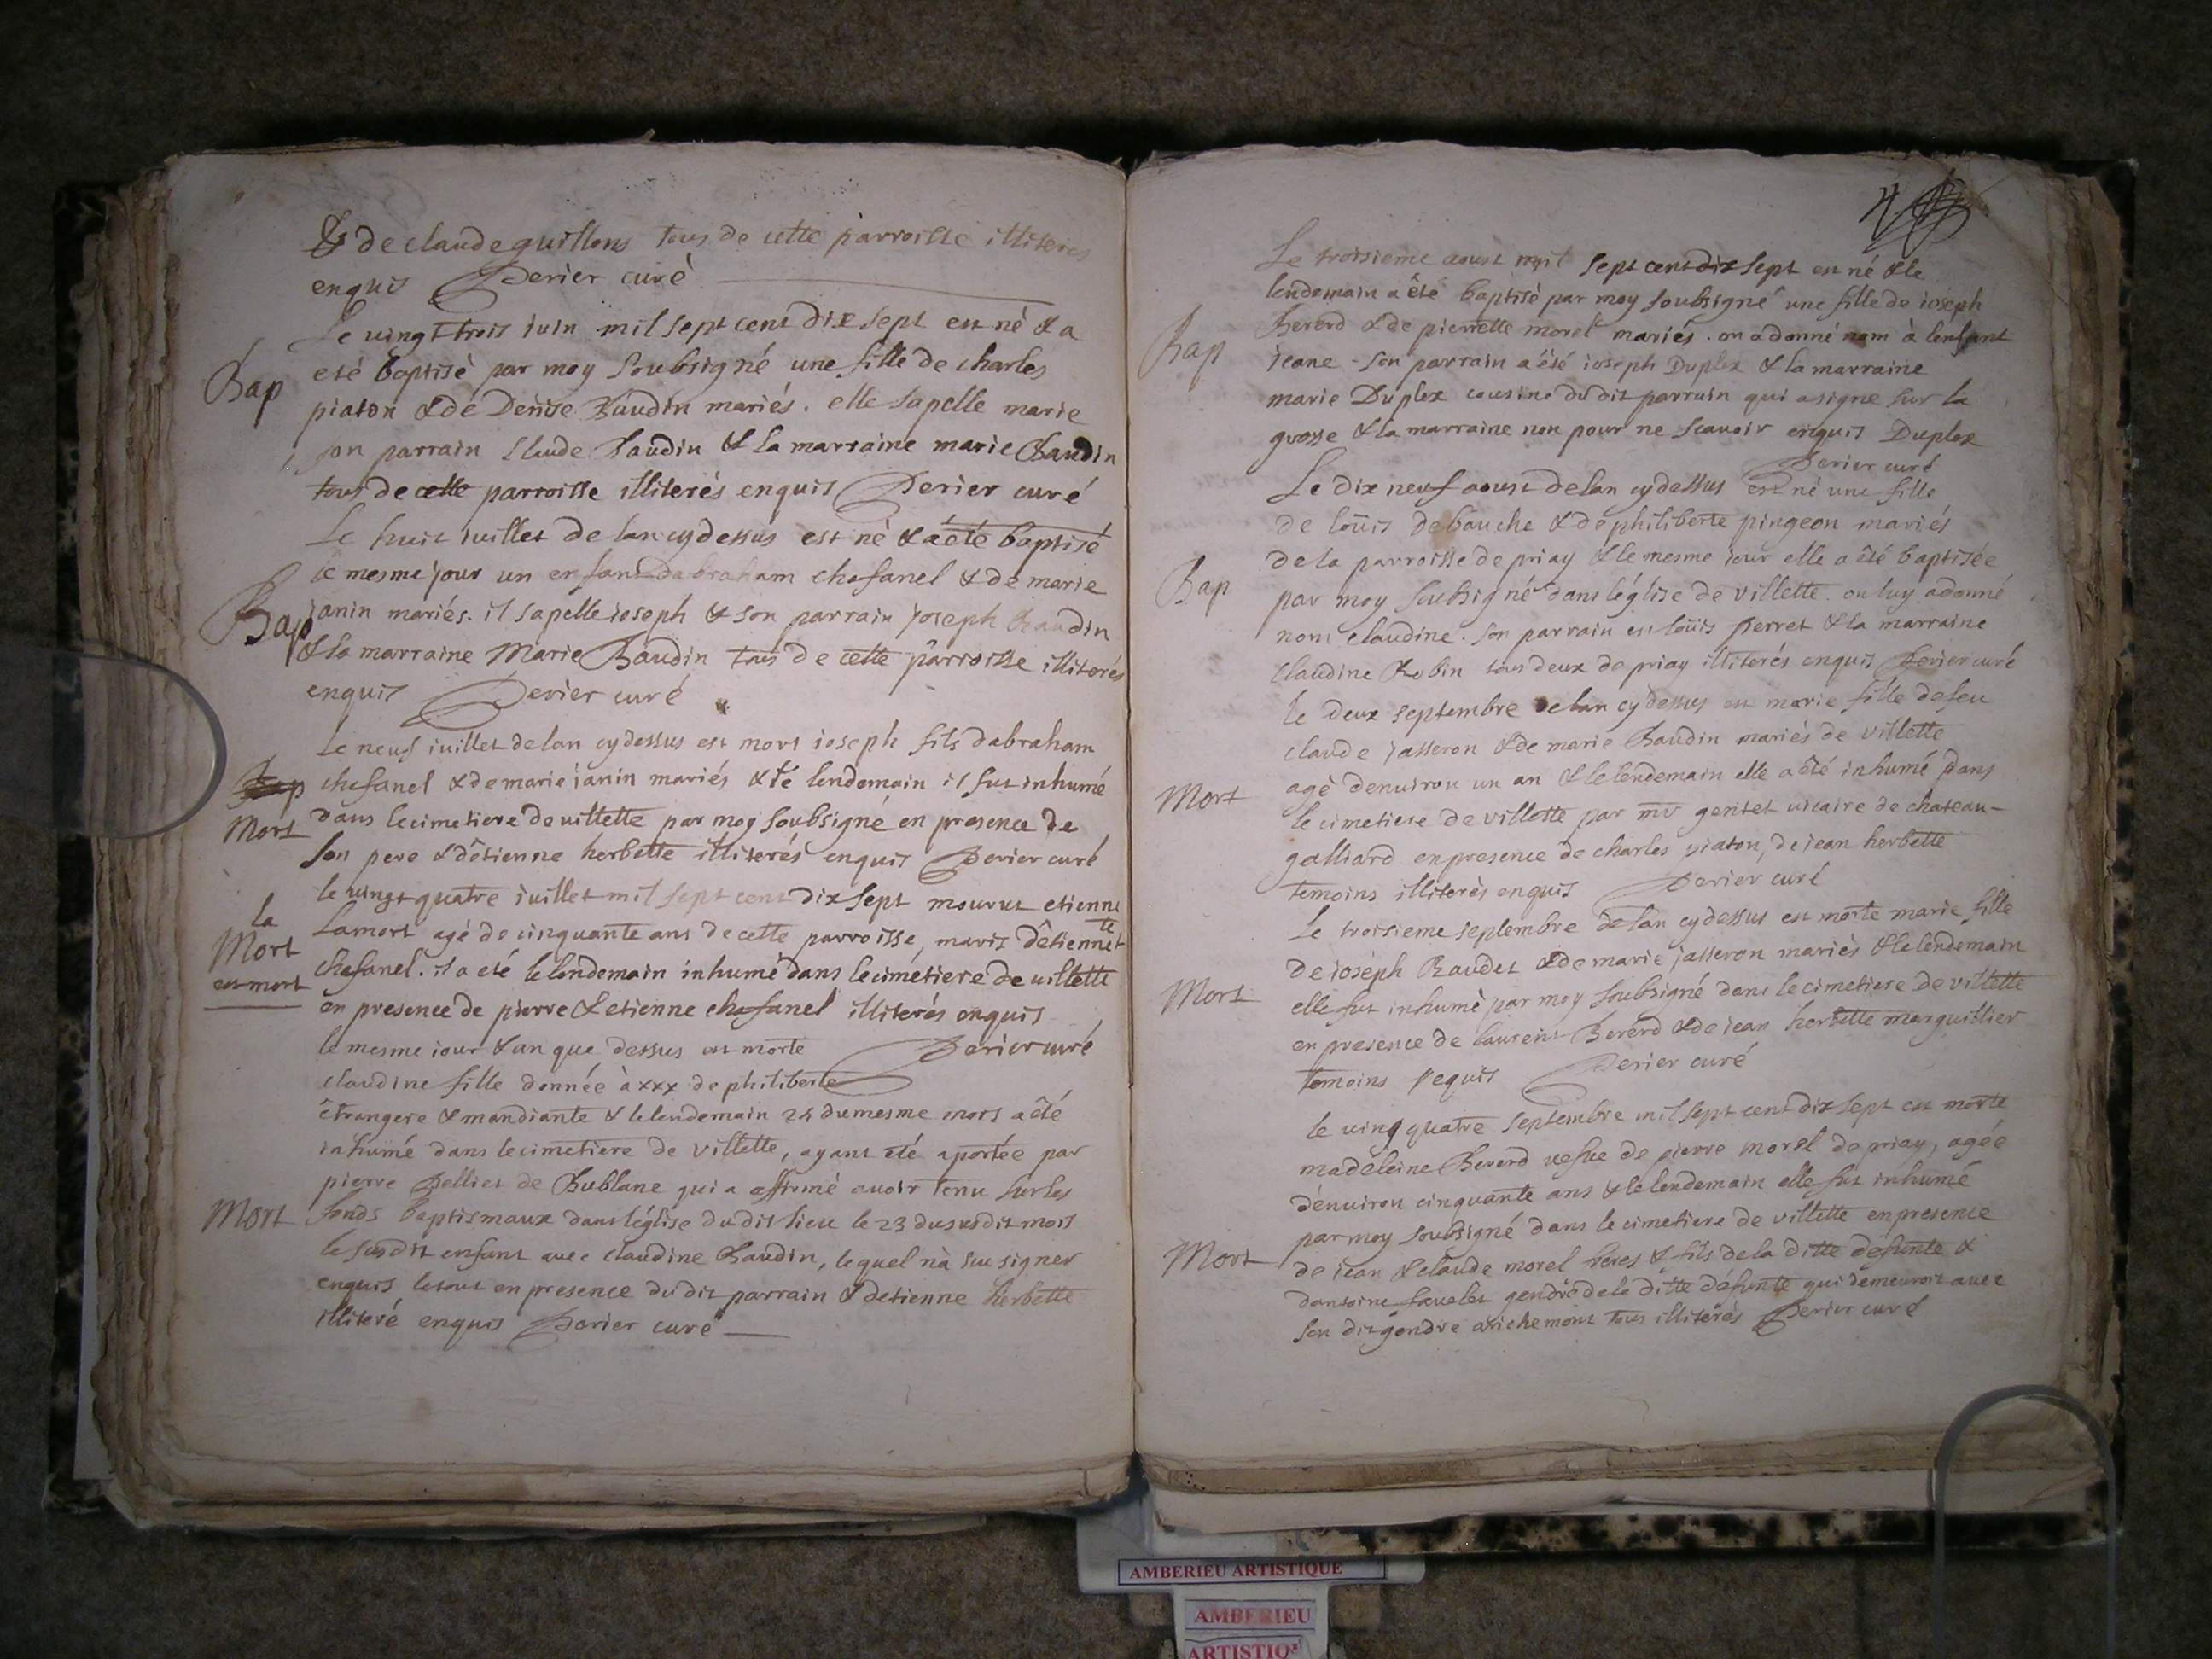 & de claude guillons tous de cette parroisse illiteres
enquis Perier curé
Le vingt trois iuin mil sept cent dix sept est né & a
Bap
eté baptisé par moy soubsigné une fille de charles
piaton & de Denise Baudin mariés. elle sapelle marie
son parrain Claude Baudin & la marraine marie Baudin
tous de cette parroisse illiterés enquis Perier curé
Le huit iuillet de lan cy dessus est né & a été baptisé
le mesme jour un enfant dabraham chafanel & de marie
Bap
janin mariés. il sapelle ioseph & son parrain joseph Baudin
& la marraine Marie Baudin tous de cette parroisse illiterés
enquis Perier curé
Le neuf iuillet de lan cy dessus est mort ioseph fils dabraham
Bap
chafanel & de marie janin mariés & le lendemain il fut inhumé
Mort
dans le cimetiere de villette par moy soubsigné en presence de
son pere & détienne herbette illiterés enquis Perier curé
le vingt quatre iuillet mil sept cent dix sept mourut etienne
la Mort est mort
Lamort agé de cinquante ans de cette parroisse, marit détiennette
chafanel. il a eté le lendemain inhumé dans le cimétiere de villette
en presence de pierre & etienne chafanel illiterés enquis
le mesme iour & an que dessus est morte Perier curé
claudine fille donnée à xxx de philiberte
étrangere & mandiante & le lendemain 25 du mesme mois a été
inhumé dans le cimetiere de villette, ayant été aportée par
pierre Pelliet de Bublane qui a affirmé avoir tenu sur les
Mort
fonds baptismaux dans léglise du dit lieu le 23 du susdit mois
le susdit enfant avec claudine Baudin, lequel nà sceu signer
enquis le tout en presence du dit parrain & detienne herbette
illiteré enquis Perier curé
Le troisieme aoust mil sept cent dix sept est né & le
lendemain a été baptisé par moy soubsigné une fille de ioseph
Bap
Bererd & de pierrette morel mariés. on a donné nom à lenfant
jeane - son parrain a été ioseph Duplex & la marraine
marie Duplex cousine du dit parrain qui a signe sur la
grosse & la marraine non pour ne scavoir enquis Duplex
Perier curé
Le dix neuf aoust de lan cy dessus est né une fille
de loüis debauche & de philiberte pingeon mariés
de la parroisse de priay & le mesme iour elle a été baptisée
Bap
par moy soubsigné dans léglise de villette. on luy a donné
nom claudine. son parrain est loüis perret & la marraine
claudine Robin tous deux de priay illiterés enquis Perier curé
le deux septembre de lan cy dessus est marie fille de feu
claude jasseron & de marie Baudin mariés de villette
Mort
agé denuiron un an & le lendemain elle a été inhumé dans
le cimetiere de villette par mr gentet vicaire de chateau-
galliard en presence de charles piaton, de jean herbette
temoins illiterés enquis Perier curé
Le troisieme septembre de lan cy dessus est morte marie fille
de ioseph Baudet & de marie jasseron mariés & le lendemain
Mort
elle fut inhumé par moy soubsigné dans le cimetiere de villette
en presence de laurent Bererd & de jean herbette marguillier
temoins requis Perier curé
le ving quatre septembre mil sept cent dix sept est morte
madeleine Bererd vefve de pierre morel de priay, agée
denuiron cinquante ans & le lendemain elle fut inhumé
par moy soubsigné dans le cimetiere de villette en presence
Mort
de jean & claude morel freres & fils de la ditte defunte &
dantoine gendre de la ditte défunte qui demeuroit avec
son dit gendre a richemont tous illiterés Perier curé
AMBERIEU ARTISTIQUE
AMBERIEU
ARTISTIQ